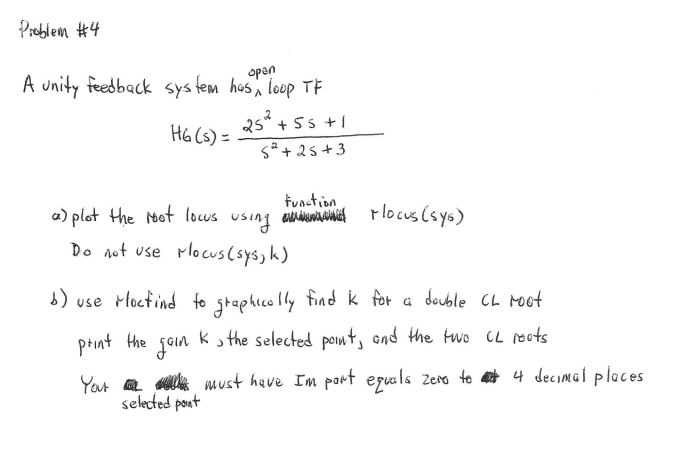 Problem #4
A unity feedback system has open loop TF
HG(s) = 2s² + 5s + 1 / s² + 2s + 3
a) plot the root locus using function rlocus(sys)
Do not use rlocus(sys,k)
b) use rlocfind to graphically find k for a double CL root
print the gain k, the selected point, and the two CL roots
Your selected point must have Im part equals zero to 4 decimal places